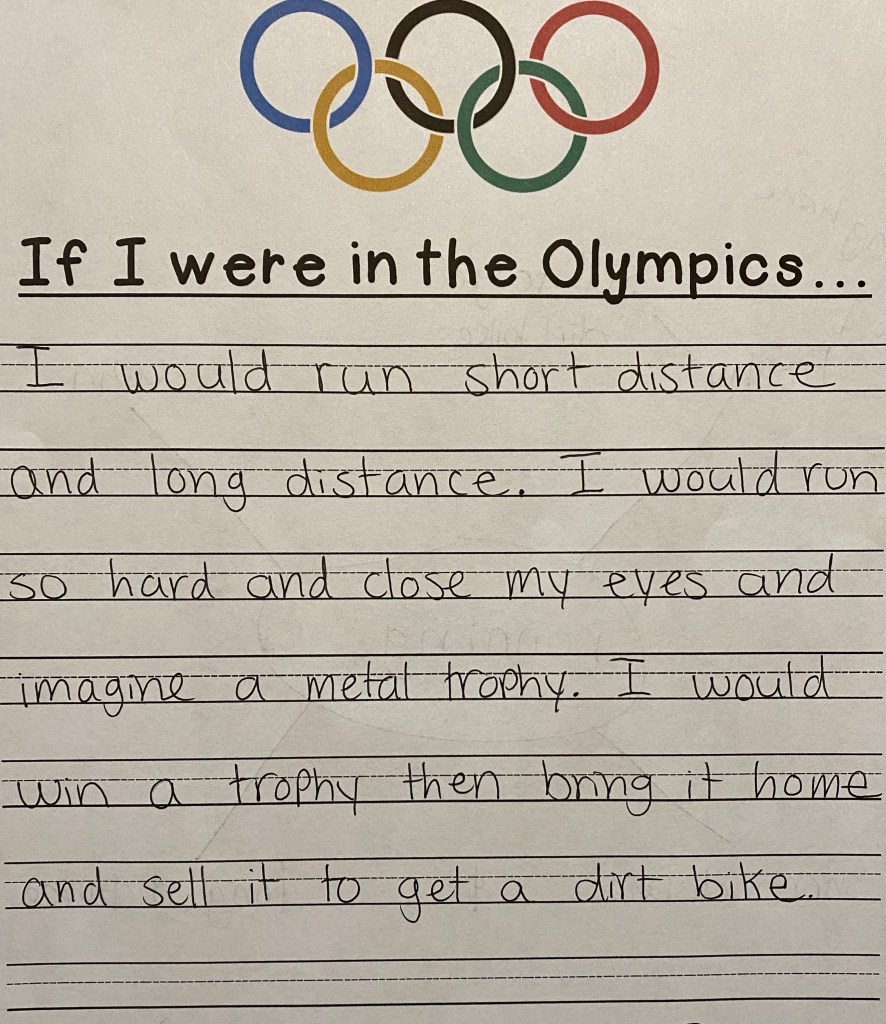 If I were in the Olympics...
I would run short distance
and long distance. I would run
so hard and close my eyes and
imagine a metal trophy. I would
win a trophy then bring it home
and sell it to get a dirt bike.